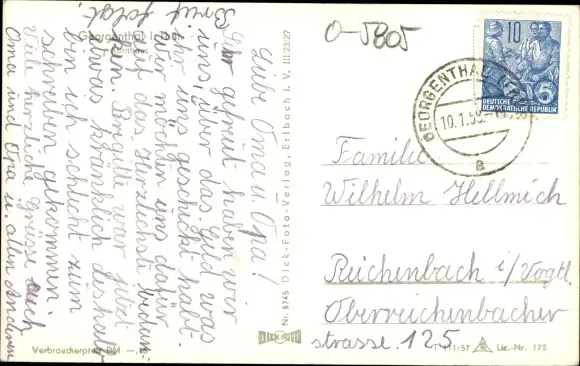 Georgenthal i. Thür.
Kornhaus
Liebe Oma u. Opa!
Sehr gefreut haben wir
uns, über das Geld was
ihr uns geschickt habt.
Wir möchten uns dafür
auf das herzlichste bedan-
ken. Brigitte war jetzt
etwas kränklich deshalb
bin ich schlecht zum
schreiben gekommen.
Viele herzliche Grüsse auch
Oma und Opa u. allen Anderen
Brief folgt.
Verbraucherpreis DM
Nr. 8745 Dick-Foto-Verlag, Erlbach i. V. III/23/27
DICK FOTO
0-5805
10
5
DEUTSCHE
DEMOKRATISCHE REPUBLIK
GEORGENTHAL
10.1.58
a
Familie
Wilhelm Hellmich
Reichenbach i/Vogtl.
Oberreichenbacher
strasse 125.
Liz.-Nr. 175